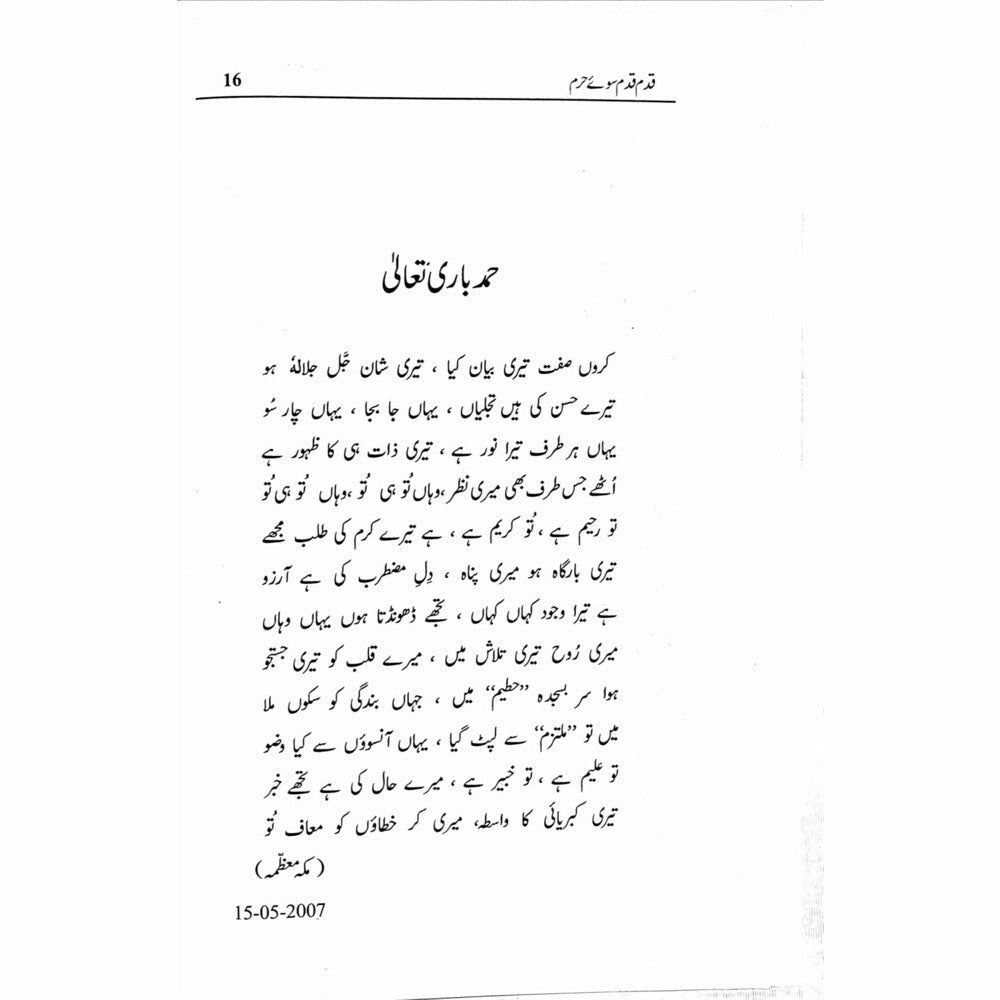 قدم قدم سوئے حرم 16
حمد باری تعالیٰ
کروں صفت تیری بیان کیا ، تیری شان جَّل جلالہٗ ہو
تیرے حسن کی ہیں تجلیاں ، یہاں جا بجا ، یہاں چار سُو
یہاں ہر طرف تیرا نور ہے ، تیری ذات ہی کا ظہور ہے
اُٹھے جس طرف بھی میری نظر ،وہاں تُو ہی تُو ،وہاں تُو ہی تُو
تو رحیم ہے ، تُو کریم ہے ، ہے تیرے کرم کی طلب مجھے
تیری بارگاہ ہو میری پناہ ، دِلِ مضطرب کی ہے آرزو
ہے تیرا وجود کہاں کہاں ، تجھے ڈھونڈتا ہوں یہاں وہاں
میری رُوح تیری تلاش میں ، میرے قلب کو تیری جستجو
ہوا سر بسجدہ ”حطیم“ میں ، جہاں بندگی کو سکوں ملا
میں تو ”ملتزم“ سے لپٹ گیا ، یہاں آنسوؤں سے کیا وضو
تو علیم ہے ، تو خبیر ہے ، میرے حال کی ہے تجھے خبر
تیری کبریائی کا واسطہ، میری کر خطاؤں کو معاف تُو
(مکہ معظّمہ)
15-05-2007